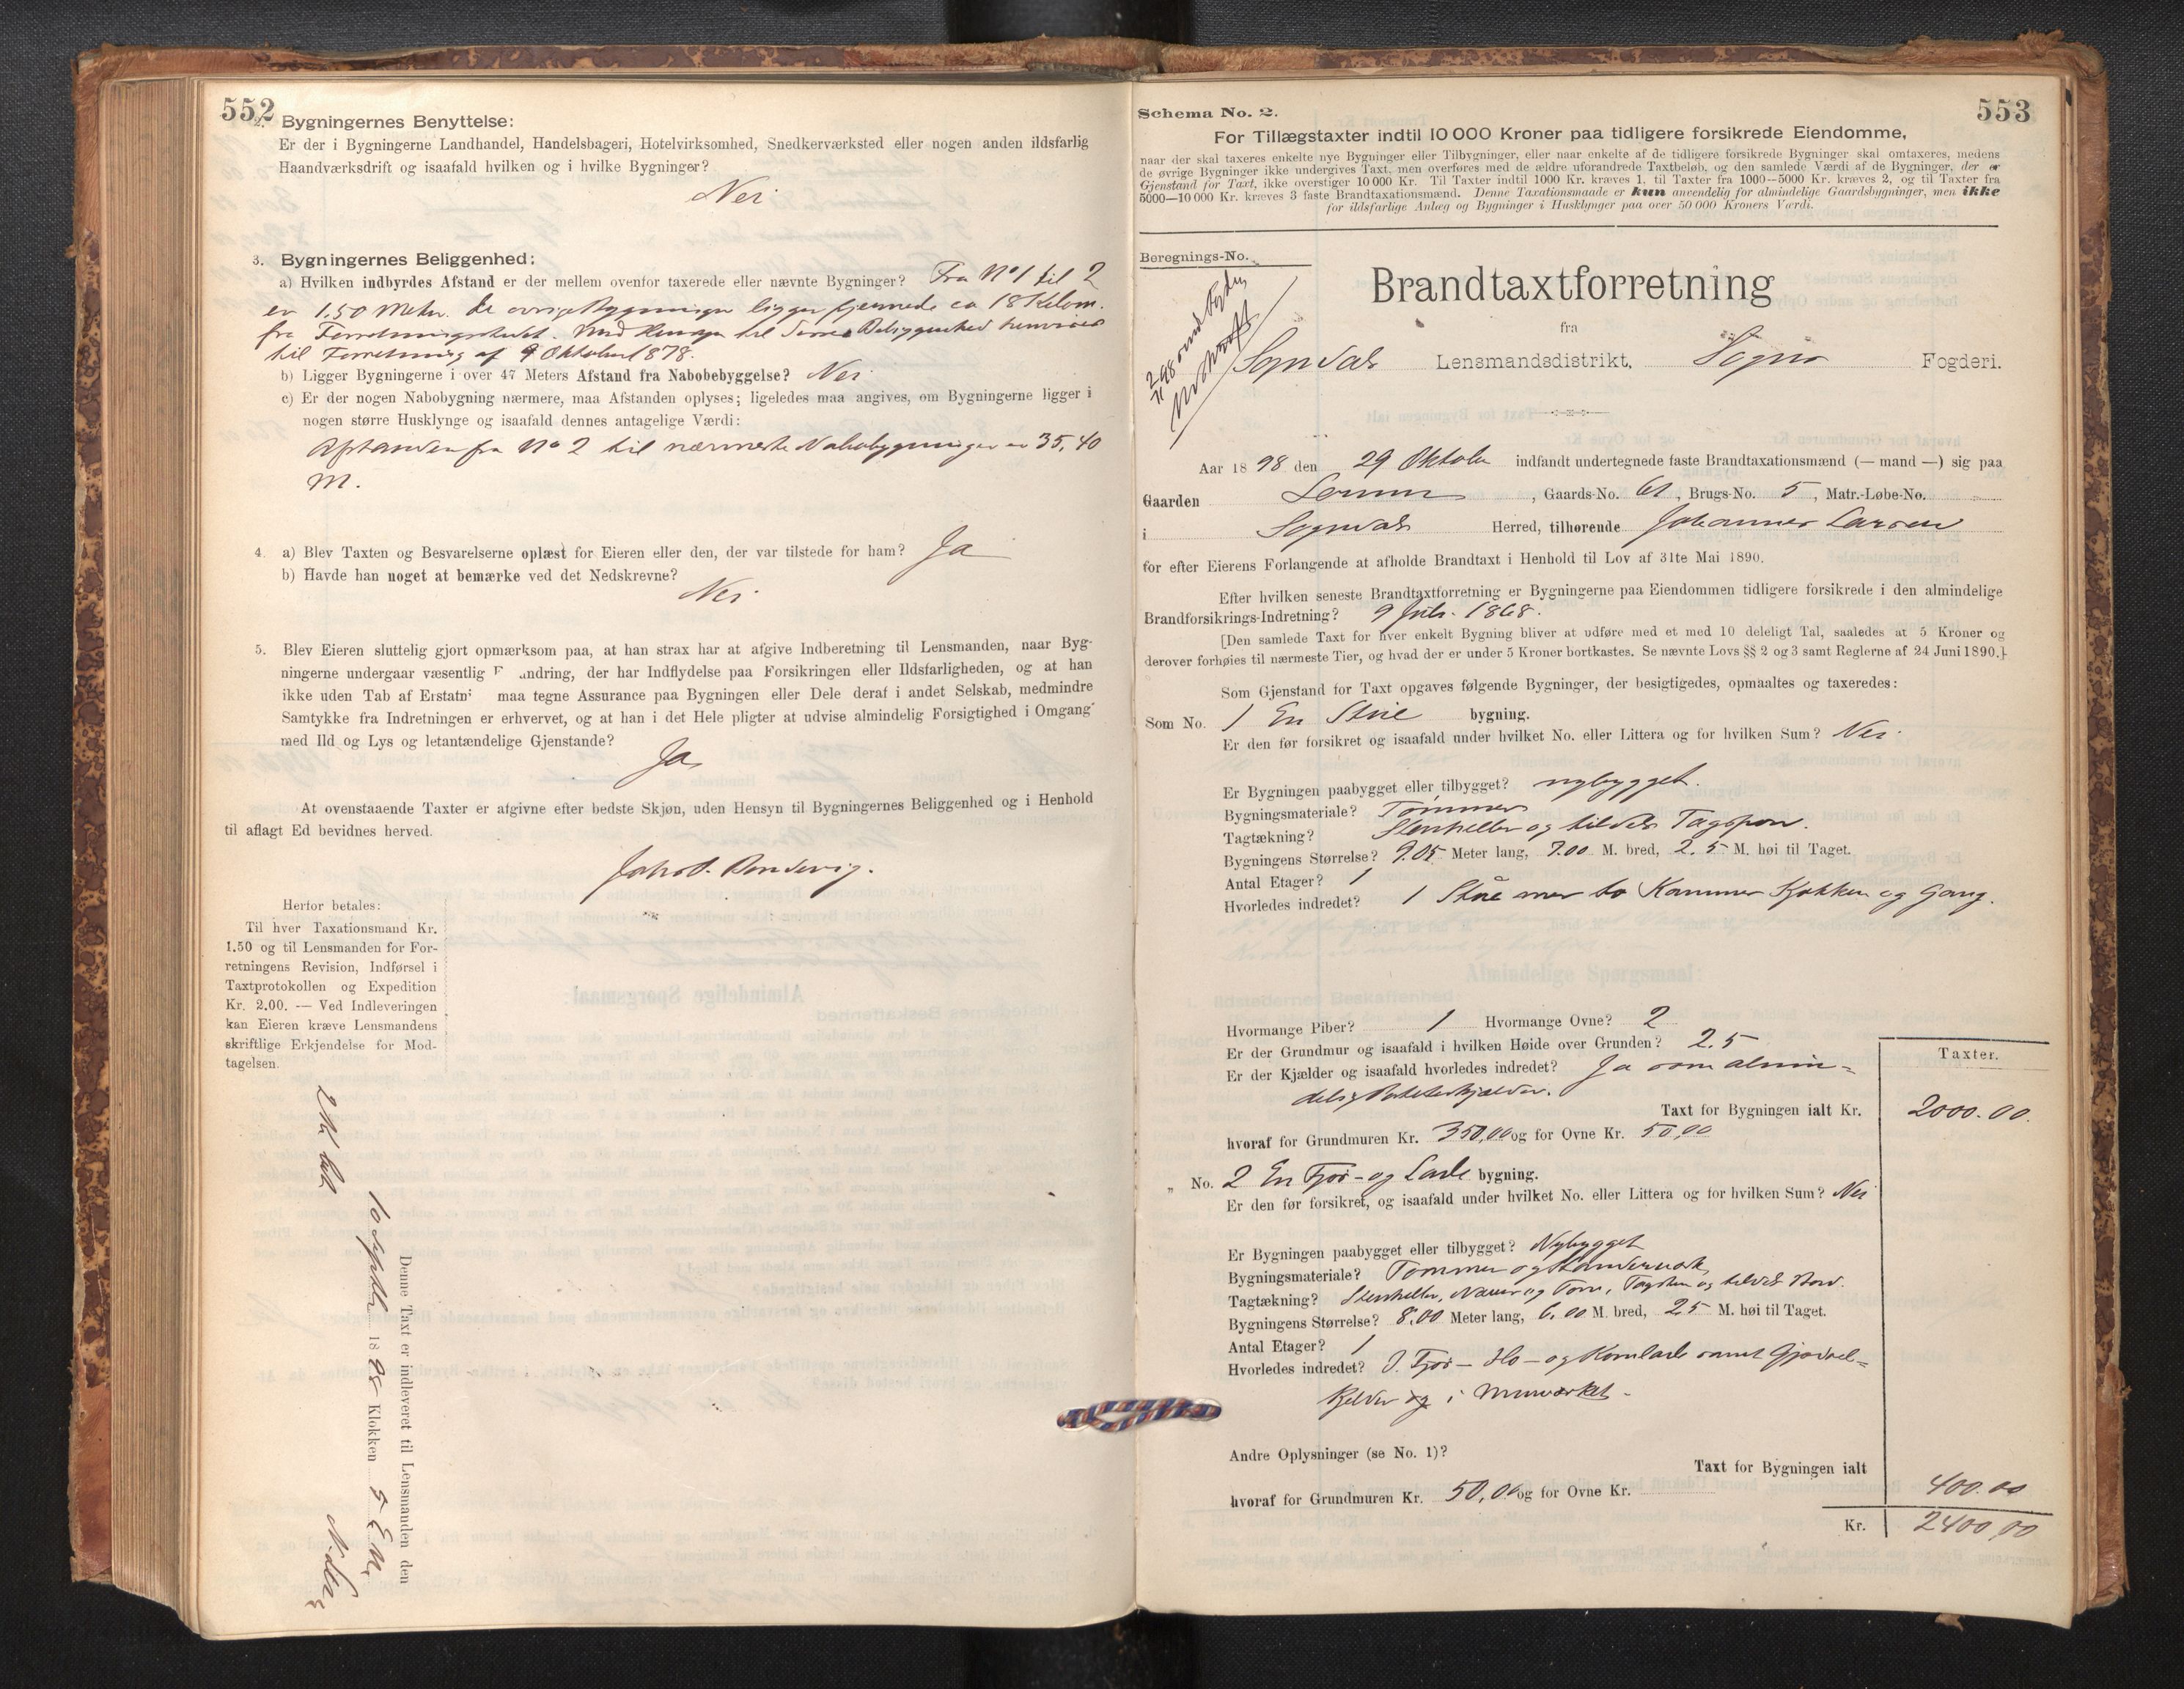 552
2. Bygningernes Benyttelse:
Er der i Bygningerne Landhandel, Handelsbageri, Hotelvirksomhed, Snedkerværksted eller nogen anden ildsfarlig
Haandværksdrift og isaafald hvilken og i hvilke Bygninger?
Nei
3. Bygningernes Beliggenhed:
a) Hvilken indbyrdes Afstand er der mellem ovenfor taxerede eller nævnte Bygninger? Fra No 1 til 2
er 1.50 Meter. De øvrige Bygninger ligger fjernede ca 18 Kilom.
fra Forretningsstedet. Med Hensyn til Beliggenhed henvises
til Forretning af 9 Oktober 1878.
b) Ligger Bygningerne i over 47 Meters Afstand fra Nabobebyggelse? Nei
c) Er der nogen Nabobygning nærmere, maa Afstanden oplyses; ligeledes maa angives, om Bygningerne ligger i
nogen større Husklynge og isaafald dennes antagelige Værdi:
Afstanden fra No 2 til nærmeste Nabobygninger er 35,40
M.
4. a) Blev Taxten og Besvarelserne oplæst for Eieren eller den, der var tilstede for ham? Ja
b) Havde han noget at bemærke ved det Nedskrevne?
Nei
5. Blev Eieren sluttelig gjort opmærksom paa, at han strax har at afgive Indberetning til Lensmanden, naar Byg-
ningerne undergaar væsentlig F andring, der har Indflydelse paa Forsikringen eller Ildsfarligheden, og at han
ikke uden Tab af Erstatn: maa tegne Assurance paa Bygningen eller Dele deraf i andet Selskab, medmindre
Samtykke fra Indretningen er erhvervet, og at han i det Hele pligter at udvise almindelig Forsigtighed i Omgang
med Ild og Lys og letantændelige Gjenstande?
Ja
At ovenstaaende Taxter er afgivne efter bedste Skjøn, uden Hensyn til Bygningernes Beliggenhed og i Henhold
til aflagt Ed bevidnes herved.
Herfor betales:
Til hver Taxationsmand Kr.
1.50 og til Lensmanden for For-
retningens Revision, Indførsel i
Taxtprotokollen og Expedition
Kr. 2.00. — Ved Indleveringen
kan Eieren kræve Lensmandens
skriftlige Erkjendelse for Mod-
tagelsen.
Denne Taxt er indleveret til Lensmanden den
10 Septbr 1898 Klokken 5 E.M.
553
Schema No. 2.
For Tillægstaxter indtil 10 000 Kroner paa tidligere forsikrede Eiendomme,
naar der skal taxeres enkelte nye Bygninger eller Tilbygninger, eller naar enkelte af de tidligere forsikrede Bygninger skal omtaxeres, medens
de øvrige Bygninger ikke undergives Taxt, men overføres med de ældre uforandrede Taxtbeløb, og den samlede Værdi af de Bygninger, der er
Gjenstand for Taxt, ikke overstiger 10 000 Kr. Til Taxter indtil 1000 Kr. kræves 1, til Taxter fra 1000—5000 Kr. kræves 2, og til Taxter fra
5000—10 000 Kr. kræves 3 faste Brandtaxationsmænd. Denne Taxationsmaade er kun anvendelig for almindelige Gaardsbygninger, men ikke
for ildsfarlige Anlæg og Bygninger i Husklynger paa over 50 000 Kroners Værdi.
Beregnings-No.
Brandtaxtforretning
fra
Sogndals Lensmandsdistrikt, Sogns Fogderi.
Aar 1898 den 29 Oktober indfandt undertegnede faste Brandtaxationsmænd (— mand —) sig paa
Gaarden Sorum, Gaards-No. 61, Brugs-No. 5, Matr.-Løbe-No.
i Sogndals Herred, tilhørende Johannes Larsen
for efter Eierens Forlangende at afholde Brandtaxt i Henhold til Lov af 31te Mai 1890.
Efter hvilken seneste Brandtaxtforretning er Bygningerne paa Eiendommen tidligere forsikrede i den almindelige
Brandforsikrings-Indretning? 9 Juli 1868.
[Den samlede Taxt for hver enkelt Bygning bliver at udføre med et med 10 deleligt Tal, saaledes at 5 Kroner og
derover forhøies til nærmeste Tier, og hvad der er under 5 Kroner bortkastes. Se nævnte Lovs §§ 2 og 3 samt Reglerne af 24 Juni 1890.]
Som Gjenstand for Taxt opgaves følgende Bygninger, der besigtigedes, opmaaltes og taxeredes:
Som No. 1 En Stue bygning.
Er den før forsikret og isaafald under hvilket No. eller Littera og for hvilken Sum? Nei.
Er Bygningen paabygget eller tilbygget? nybygget.
Bygningsmateriale? Tømmer
Tagtækning? Stenheller og tildels Tagspon.
Bygningens Størrelse? 9.05 Meter lang, 7.00 M. bred, 2.5 M. høi til Taget.
Antal Etager? 1
Hvorledes indredet? 1 Stue med to Kammer Kjøkken og Gang.
Hvormange Piber? 1 Hvormange Ovne? 2
Er der Grundmur og isaafald i hvilken Høide over Grunden? 2.5
Er der Kjælder og isaafald hvorledes indredet? Ja som almin-
delig Potetkjælder.
Taxter.
Taxt for Bygningen ialt Kr. 2000.00.
hvoraf for Grundmuren Kr. 350,00 og for Ovne Kr. 50,00
„ No. 2 En Fjøs- og Lade bygning.
Er den før forsikret, og isaafald under hvilket No. eller Littera og for hvilken Sum? Nei
Er Bygningen paabygget eller tilbygget? Nybygget
Bygningsmateriale? Tømmer og Standerværk
Tagtækning? Stenheller, Næver og Torv, Tagsten og tildels Bord.
Bygningens Størrelse? 8.00 Meter lang, 6.00 M. bred, 2.5 M. høi til Taget.
Antal Etager? 1
Hvorledes indredet? I Fjøs- Hø- og Kornlade samt Gjødsel-
kjelder i Murværket.
Andre Oplysninger (se No. 1)?
Taxt for Bygningen ialt 400.00
hvoraf for Grundmuren Kr. 50,00 og for Ovne Kr.
Kr. 2400,00